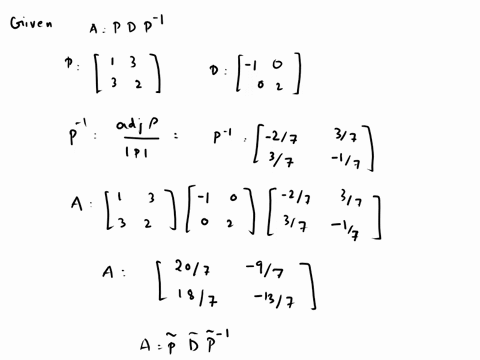 Given A: P D P^-1
P: [1 3; 3 2] D: [-1 0; 0 2]
P^-1: adj P / |P| = P^-1: [-2/7 3/7; 3/7 -1/7]
A: [1 3; 3 2] [-1 0; 0 2] [-2/7 3/7; 3/7 -1/7]
A: [20/7 -9/7; 18/7 -13/7]
A: P̃ D̃ P̃^-1